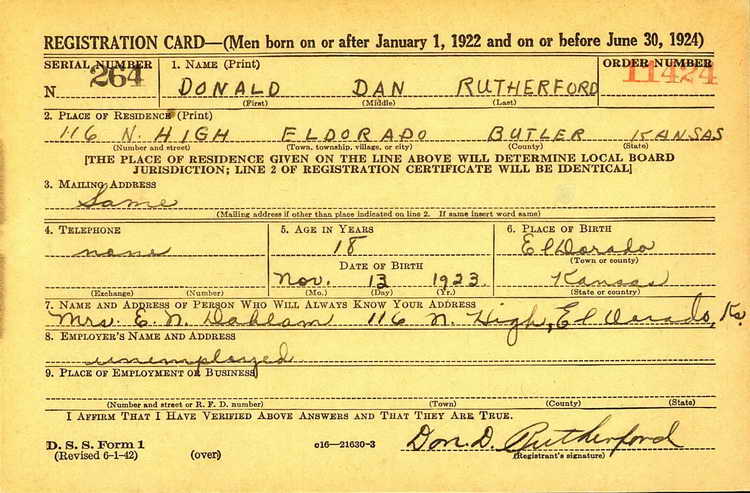 REGISTRATION CARD—(Men born on or after January 1, 1922 and on or before June 30, 1924)
SERIAL NUMBER 1. NAME (Print) ORDER NUMBER
N 264 DONALD DAN RUTHERFORD 11424
(First) (Middle) (Last)
2. PLACE OF RESIDENCE (Print)
116 N. HIGH ELDORADO BUTLER KANSAS
(Number and street) (Town, township, village, or city) (County) (State)
[THE PLACE OF RESIDENCE GIVEN ON THE LINE ABOVE WILL DETERMINE LOCAL BOARD
JURISDICTION; LINE 2 OF REGISTRATION CERTIFICATE WILL BE IDENTICAL]
3. MAILING ADDRESS
Same
(Mailing address if other than place indicated on line 2. If same insert word same)
4. TELEPHONE 5. AGE IN YEARS 6. PLACE OF BIRTH
none 18 El Dorado
(Town or county)
DATE OF BIRTH
Nov. 13 1923 Kansas
(Exchange) (Number) (Mo.) (Day) (Yr.) (State or country)
7. NAME AND ADDRESS OF PERSON WHO WILL ALWAYS KNOW YOUR ADDRESS
Mrs. E. N. 116 N. High, El Dorado, Ks.
8. EMPLOYER'S NAME AND ADDRESS
unemployed
9. PLACE OF EMPLOYMENT OR BUSINESS
(Number and street or R. F. D. number) (Town) (County) (State)
I AFFIRM THAT I HAVE VERIFIED ABOVE ANSWERS AND THAT THEY ARE TRUE.
D. S. S. Form 1
(Revised 6-1-42) (over) c16—21630-3 Don. D. Rutherford
(Registrant's signature)